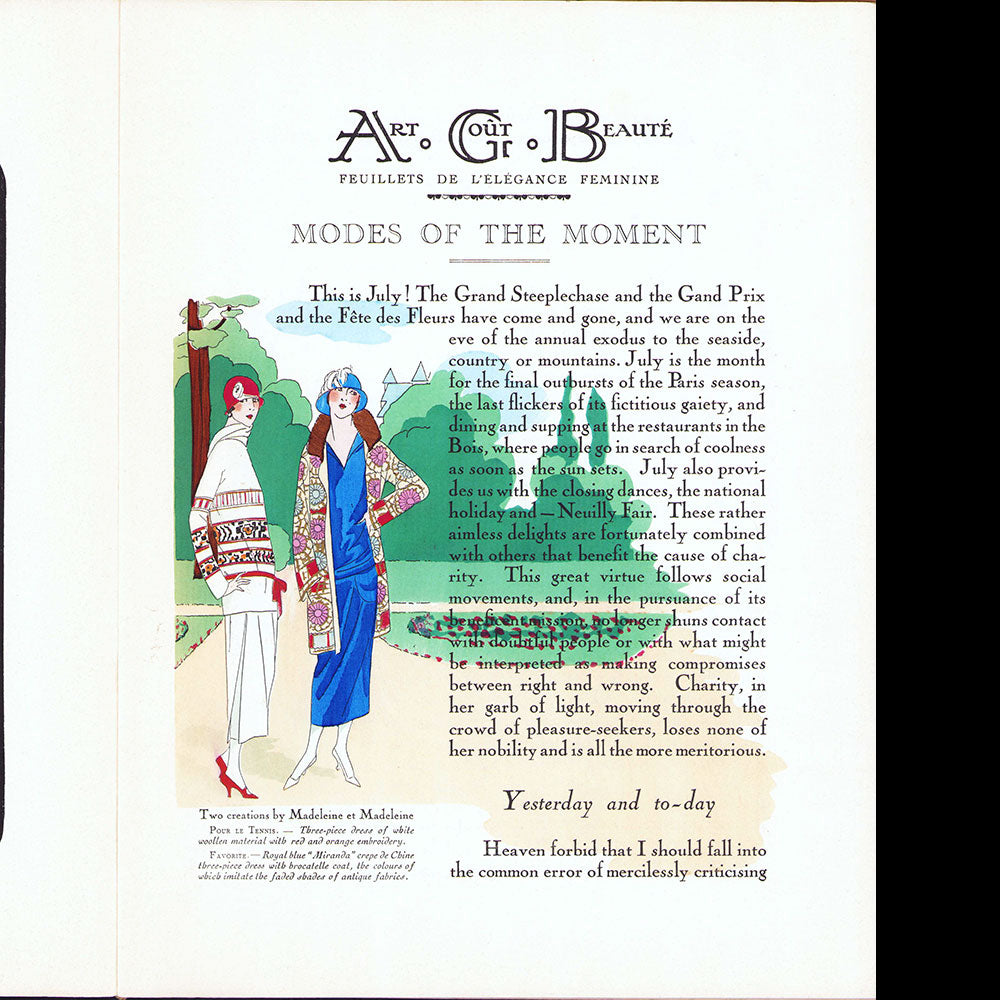 ART • GOÛT • BEAUTÉ
FEUILLETS DE L'ELÉGANCE FEMININE
MODES OF THE MOMENT
This is July! The Grand Steeplechase and the Gand Prix
and the Fête des Fleurs have come and gone, and we are on the
eve of the annual exodus to the seaside,
country or mountains. July is the month
for the final outbursts of the Paris season,
the last flickers of its fictitious gaiety, and
dining and supping at the restaurants in the
Bois, where people go in search of coolness
as soon as the sun sets. July also provi-
des us with the closing dances, the national
holiday and — Neuilly Fair. These rather
aimless delights are fortunately combined
with others that benefit the cause of cha-
rity. This great virtue follows social
movements, and, in the pursuance of its
beneficent mission, no longer shuns contact
with doubtful people or with what might
be interpreted as making compromises
between right and wrong. Charity, in
her garb of light, moving through the
crowd of pleasure-seekers, loses none of
her nobility and is all the more meritorious.
Yesterday and to-day
Heaven forbid that I should fall into
the common error of mercilessly criticising
Two creations by Madeleine et Madeleine
POUR LE TENNIS. — Three-piece dress of white
woollen material with red and orange embroidery.
FAVORITE. — Royal blue "Miranda" crepe de Chine
three-piece dress with brocatelle coat, the colours of
which imitate the faded shades of antique fabrics.